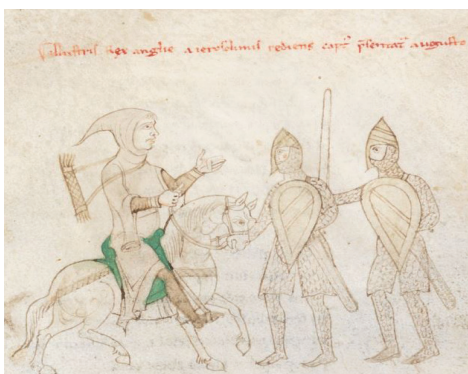 Illustris Rex anglie a ierosolimis rediens captꝰ presentatꝰ augusto